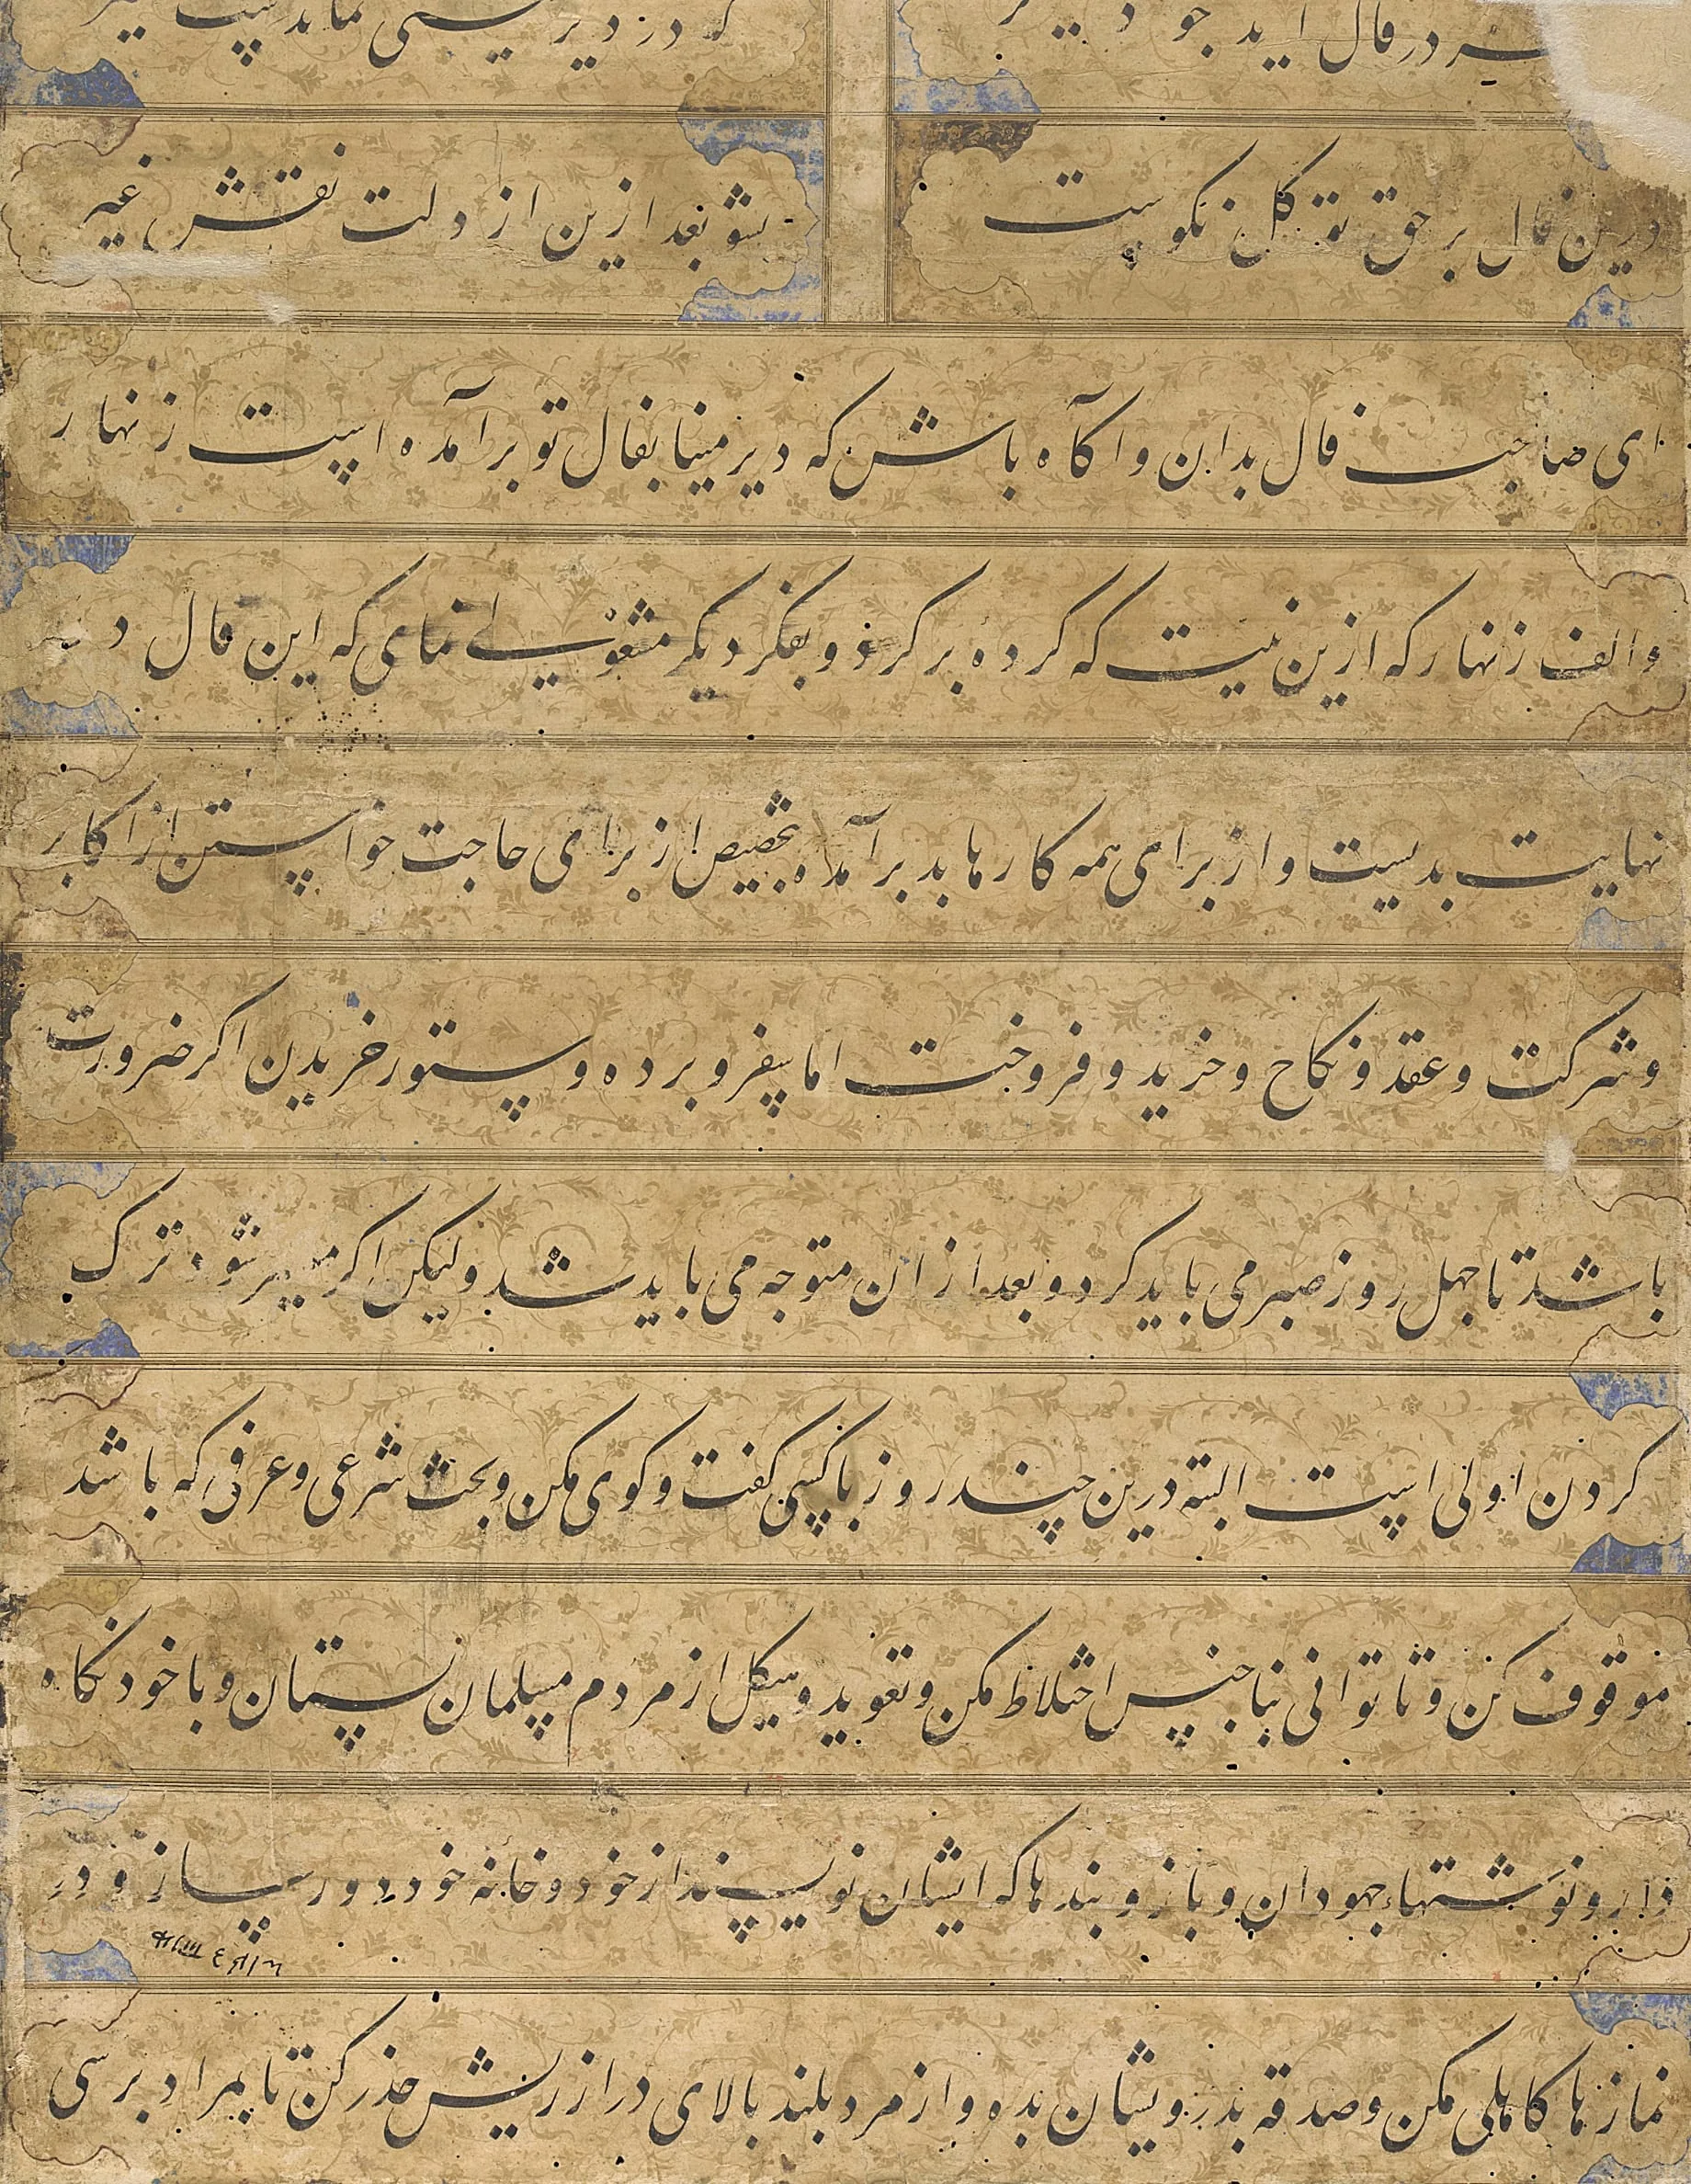 در فال آید جو
که در دیر هستی نماند
درین فال بر حق توکل نکوست
بشو بعد ازین از دلت نقش غیر
ای صاحب فال بدان و آگاه باش که دیر مینا بفال تو برآمده است زنهار
والف زنهار که ازین نیت که کرده برگرد و بفکر دیگر مشغولی نمای که این فال در
نهایت بدیست و از برای همه کارها بد برآمده بتخصیص از برای حاجت خواستن از اکابر
و شرکت و عقد و نکاح و خرید و فروخت اما سفر و برده و ستور خریدن اگر ضرورت
باشد تا چهل روز صبر می باید کرد و بعد از ان متوجه می باید شد ولیکن اگر میسر شود ترک
کردن اولی است البته درین چند روز با کسی گفت و گوی مکن و بحث شرعی و عرفی که باشد
موقوف کن و تا توانی بناجنس اختلاط مکن و تعوید و هیکل از مردم مسلمان بستان و با خود نگاه
دار و نوشتهاء جهودان و بازوبندها که ایشان نویسند از خود و خانه خود دور ساز و در
نمازها کاهلی مکن و صدقه بدرویشان بده و از مرد بلند بالای دراز ریش حذر کن تا بمراد برسی